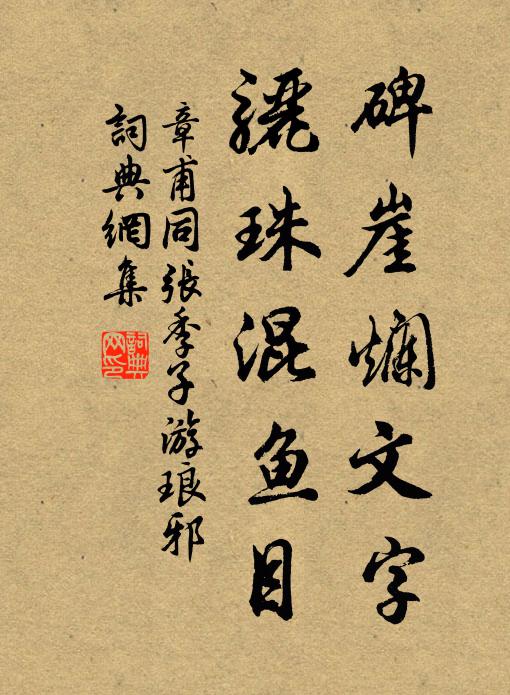 碑崖爛文字
驪珠混鱼目
章甫同張季子游琅邪
詞典網集
詞典网印